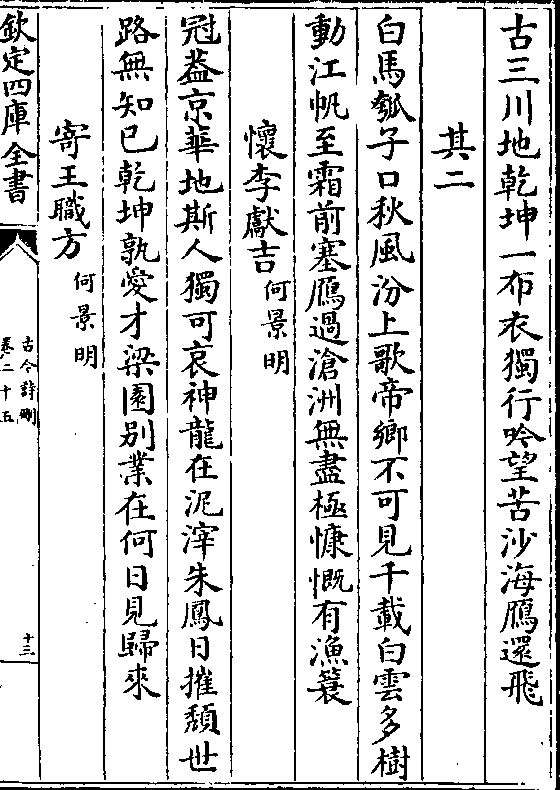 古三川地乾坤一布衣獨行吟望苦沙海鴈還飛
其二
白馬瓠子口秋風汾上歌帝鄉不可見千載白雲多樹
動江帆至霜前塞鴈過滄洲無盡極慷慨有漁簑
懷李獻吉 何景明
冠葢京華地斯人獨可哀神龍在泥滓朱鳳日摧頽世
路無知已乾坤孰愛才梁園别業在何日見歸來
寄王職方 何景明
欽定四庫全書
古今詩刪
卷二十五
十三